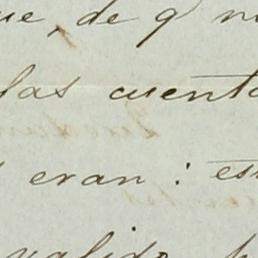 ue, de q n
las cuenta
eran: es
valido